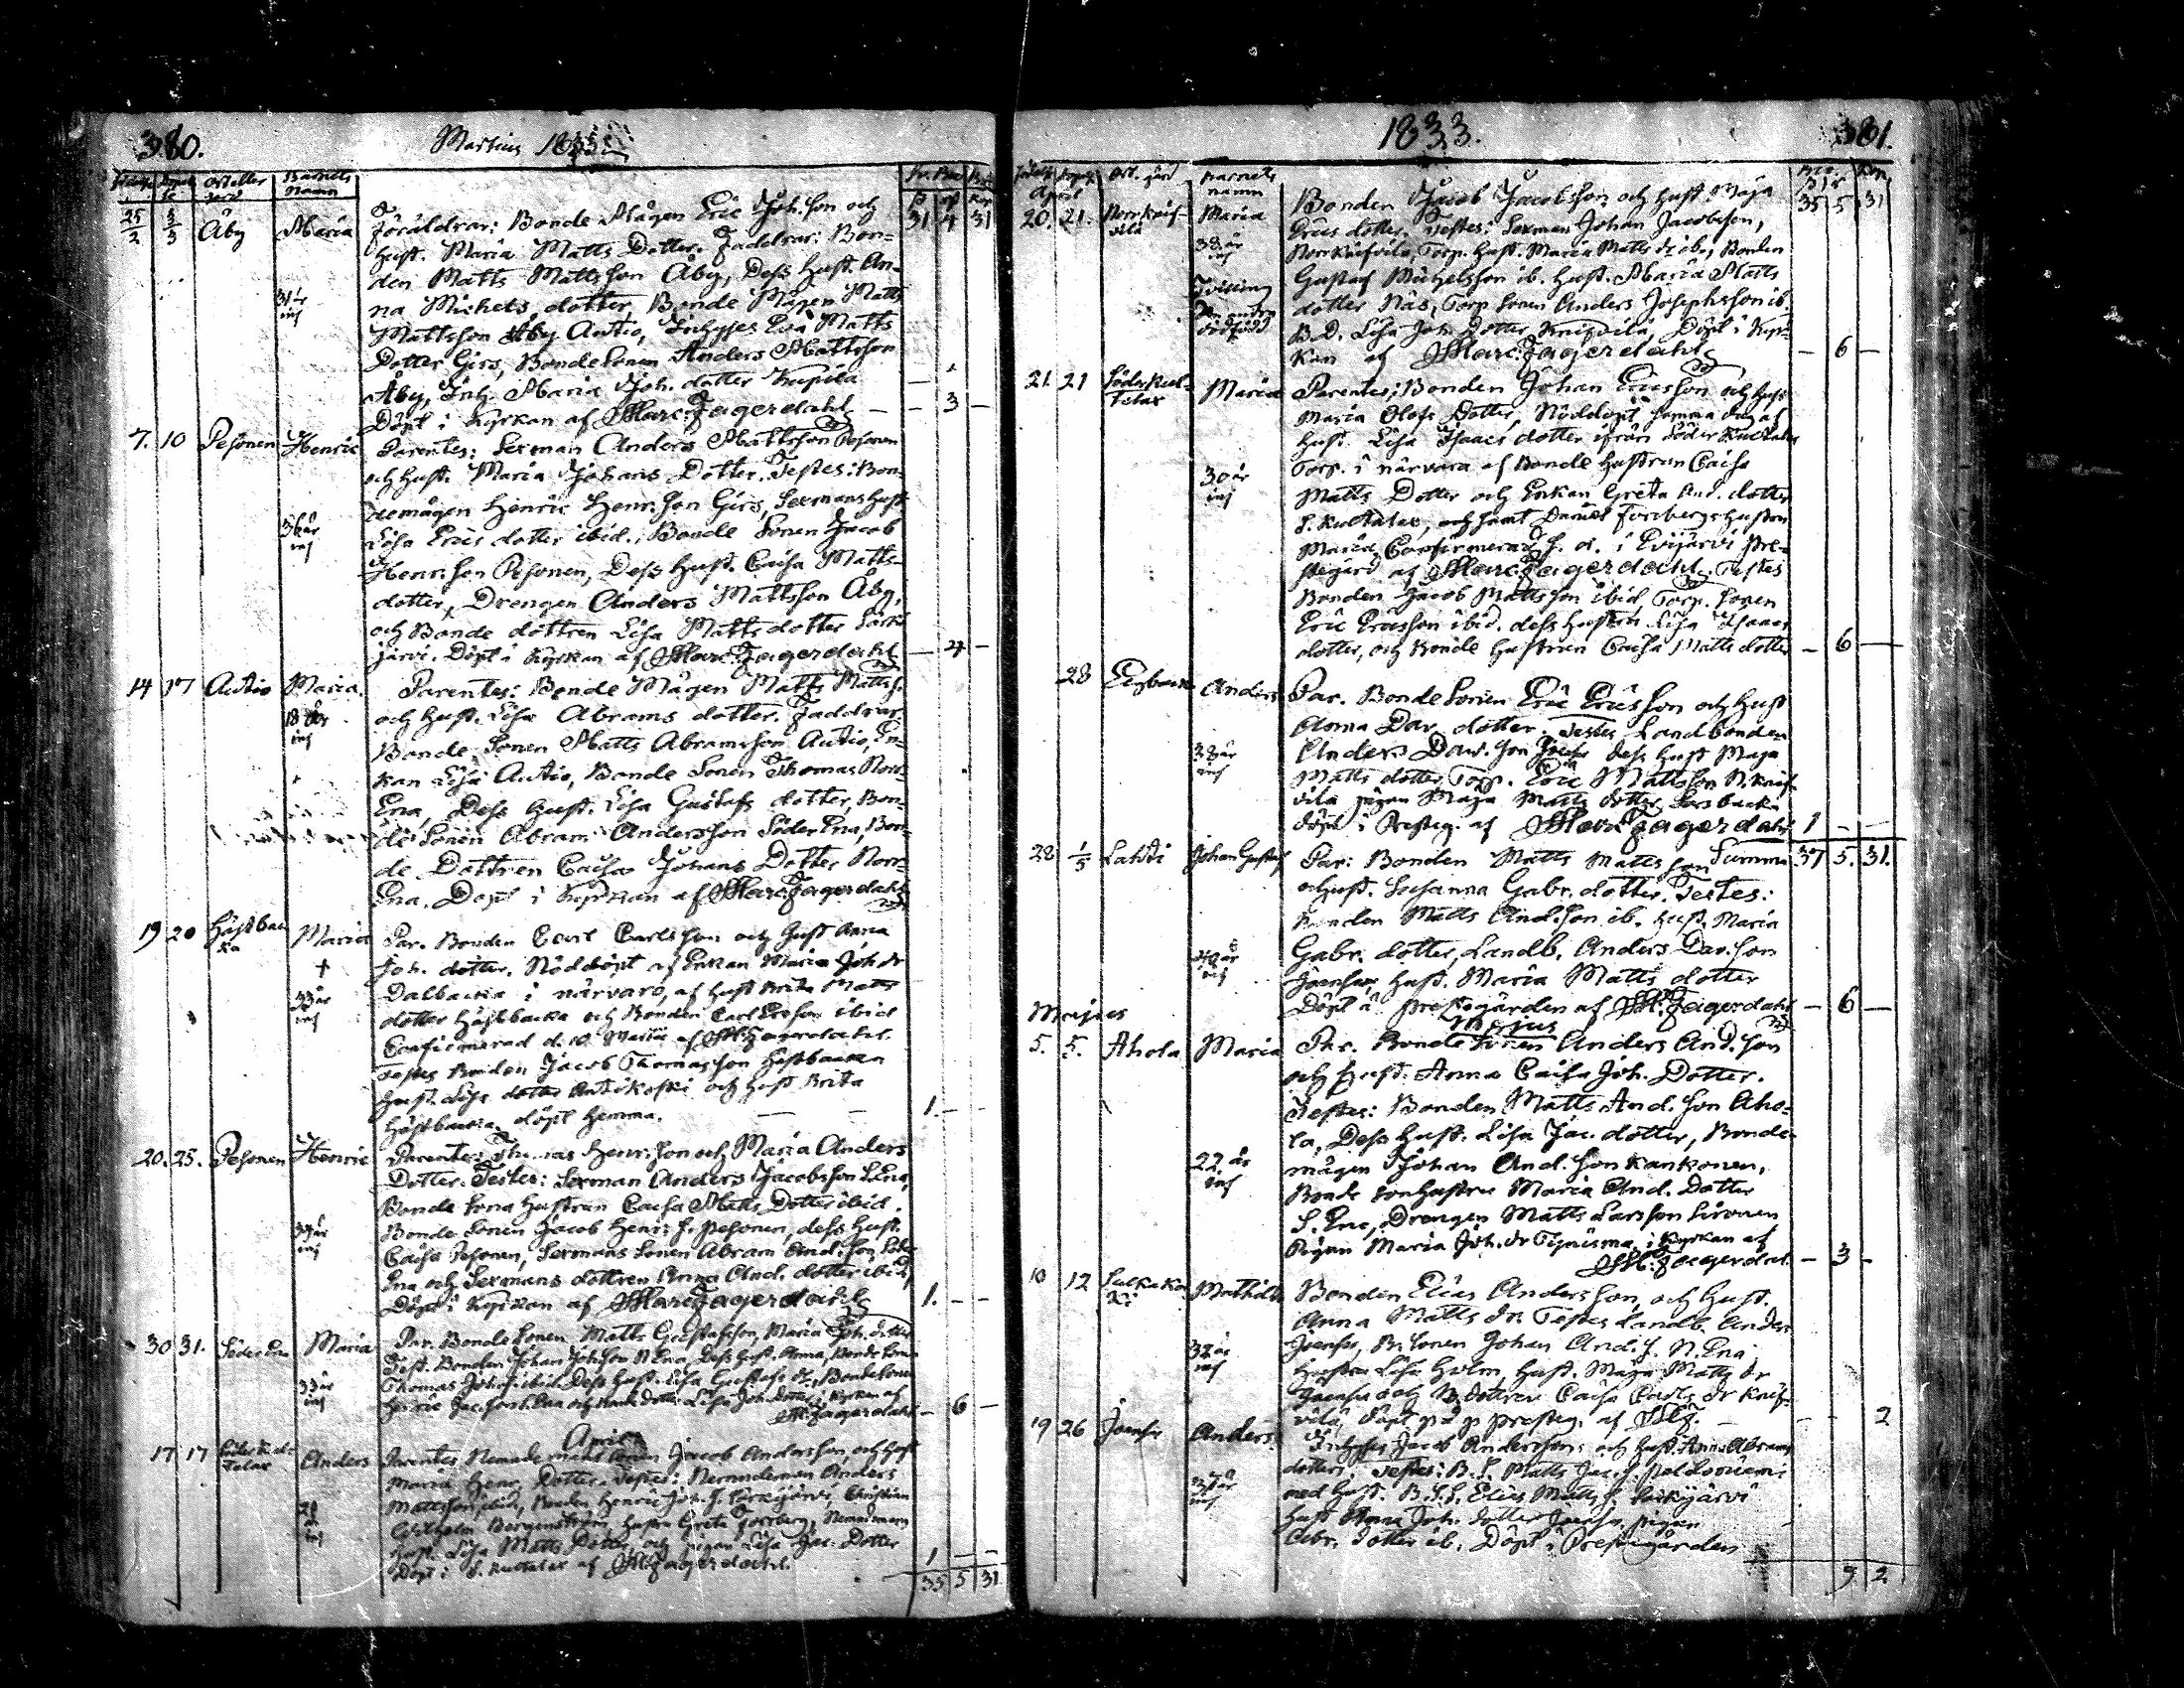 380.
Martius 1833
Ort eller gård
Barnets Namn
25/2 3/3 Åby Maria Föräldrar: Bonde Mågen Eric Joh. son och 31 4 31
Hust. Maria Matts Dotter. Faddrar: Bon-
den Matts Mattsson Åby, Dess Hust. An-
31 år na Michels dotter, Bonde Mågen Matts
Mattsson Åby Autio, Inhyses Eva Matts
Dotter Girs, Bonde Sonen Anders Mattsson
Åby, Inh. Maria Joh. dotter
Döpt i Kyrkan af Marc: Fagerdahl — 3 —
7. 10 Pesonen Henric Parentes: Sexman Anders Mattsson Pesonen
och Hust. Maria Johans Dotter. Testes: Bon-
demågen Henric Henr. son Girs, Sexmans Hust
36 år Lisa Erics dotter ibid., Bonde Sonen Jacob
Henr. son Pesonen, Dess Hust. Caisa Matts-
dotter, Drengen Anders Mattsson Åby,
och Bonde dottren Lisa Matts dotter
järvi. Döpt i Kyrkan af Marc: Fagerdahl —
14 17 Autio Maria. Parentes: Bonde Mågen Matts Matts s.
18 år och Hust. Lisa Abrams dotter. Faddrar
Bonde Sonen Matts Abramsson Autio, En-
kan Lisa Autio, Bonde Sonen Thomas Norr-
Ena, Dess Hust. Lisa Gustafs dotter, Bon-
de Sonen Abram Andersson Söder Ena, Bon-
de Dottren Caisa Johans Dotter Norr-
Ena. Döpt i Kyrkan af Marc: Fagerdahl
19 20 Högstbac ka Maria Par. Bonden Carl Carlsson och Hust Anna
† Joh. dotter. Nöddöpt af Enkan Maria Joh dr
33 år Dalbacka i närvaro, af Hust Brita Matts
dotter Högstbacka och Bonden Carl Ersson ibid
Confirmerad d. 10 Martii af M: Fagerdahl.
Testes Bonden Jacob Thomasson Högstbacka
Hust. Lisa dotter Antikoski och Hust Brita
Högstbacka. döpt hemma. 1. —
20. 25. Pesonen Henric Parentes: Thomas Henr. son och Maria Anders
Dotter. Testes: Sexman Anders Jacobsson S. Ena,
Bonde Sona Hustrun Caisa Matts Dotter ibid.
Bonde Sonen Jacob Henr: s. Pesonen, dess Hust.
Caisa Pesonen, Sexmans Sonen Abram And. son Söder
Ena och Sexmans dottren Anna And. dotter ibid.
Döpt i Kyrkan af Marc Fagerdahl 1. — —
30 31. Söder Ena Maria Par. Bonde Sonen Matts Gustafsson, Maria Joh. dotter
Test. Bonden Johan Joh. son N Ena, Dess Hust. Anna, Bonde Sonen
33 år Thomas Joh. s. ibid. Dess Hust. Lisa Gustafs dr, Bonde Sonen
Henric Jac. son S. Ena och Bonde dotter Lisa Joh. Dotter, i Kyrkan af
M: Fagerdahl — 6 —
April
17 17 Anders Parentes Nemndemans Sonen Jacob Andersson, och Hust
Maria Henr. Dotter. Testes: Nemndeman Anders
Mattsson ibid, Bonden Henric Joh. s. Särkijärvi, Christian
Wilhelm Bergenström, Hustru Greta Forsberg, Nemndemans
Hust. Lisa Matts Dotter, och pigan Lisa Jac. Dotter
Döpt i S. Kultalax af M: Fagerdahl. 1 — —
35 5 31
1833. 381.
April Ort. gård Barnets namn
20. 21. Norr Knif- vila Maria Bonden Jacob Jacobsson och Hust. Maja 35 5 31
38 år Erics dotter. Testes: Sexman Johan Jacobsson,
Norrknifvila, Torp. Hust. Maria Matts dr ibid, Bonden
Tvilling Gustaf Michelsson ib. Hust. Maria Matts
Den andra dödfödd dotter Näs, Torp. Sonen Anders Josephsson ib.
B. D. Lisa Joh. Dotter Knifvila, Döpt i Kyr-
kan af Marc: Fagerdahl — 6 —
21. 21 Maria Parentes: Bonden Johan Ericsson och Hust
Maria Olofs Dotter, Nöddöpt samma dag af
Hust. Lisa Isaacs dotter ifrån Söder Kultalax
30 år Torp. i närvara af Bonde Hustrun Caisa
Matts Dotter och Enkan Greta And. dotter
S. Kultalax, och samt Forsbergs Hustru
Maria. Confirmerad s. d. i Evijärvi Pre-
stegård af Marc: Fagerdahl. Testes
Bonden Jacob Mattsson ibid, Torp. Sonen
Eric Ericsson ibid. dess Hustru Lisa Isaacs
dotter, och Bonde Hustrun Caisa Matts dotter — 6 —
28 Anders Par. Bonde Sonen Eric Ericsson och Hust
Anna Dav. dotter. Testes Landbonden
38 år Anders Dav. son Joensu dess Hust Maja
Matts dotter, Torp. Eric Mattsson N. Knif-
vila pigan Maja Matts dotter
döpt i Presteg. af Marc: Fagerdahl 1 — —
28 1/5 Lahti Johan Gustaf Par: Bonden Matts Mattsson Summa 37 5. 31.
och Hust. Susanna Gabr. dotter. Testes:
Bonden Matts And. son ib. Hust. Maria
Gabr. dotter, Landb. Anders Dav. son
Joensu, Hust. Maria Matts dotter
Döpt å prestegården af M: Fagerdahl — 6 —
Majus
5. 5. Ahola Maria Par. Bonde Sonen Anders And. son
och Hust. Anna Caisa Joh. Dotter.
Testes: Bonden Matts And. son Aho-
la, Dess Hust. Lisa Jac. dotter, Bonde-
22 år mågen Johan And. son Kankonen,
Bonde sonhustru Maria And. Dotter
S. Ena, Drengen Matts Larsson
Pigan Maria Joh. dr i Kyrkan af
M: Fagerdahl — 3 —
10 12 Mathilda Bonden Elias Andersson, och Hust.
Anna Matts dr. Testes Landb. Anders
38 år Joensu, B. Sonen Johan And. s. N. Ena
Hustru Lisa Holm, Hust. Maja Matts dr
Joensu och B. dottren Caisa Carls dr Knif-
vila, döpt på presteg. af M: F. — — 2
19 26 Joensu Anders Inhyses Jacob Andersson och Hust. Anna Abrams
dotter. Testes: B. S. Matts Jac. s.
37 år med Hust. B. S. S. Elias Matts s. Särkijärvi
Hust Anna Joh. dotter Joensu, pigan
Abr. dotter ib. Döpt i Prestegården
9 2